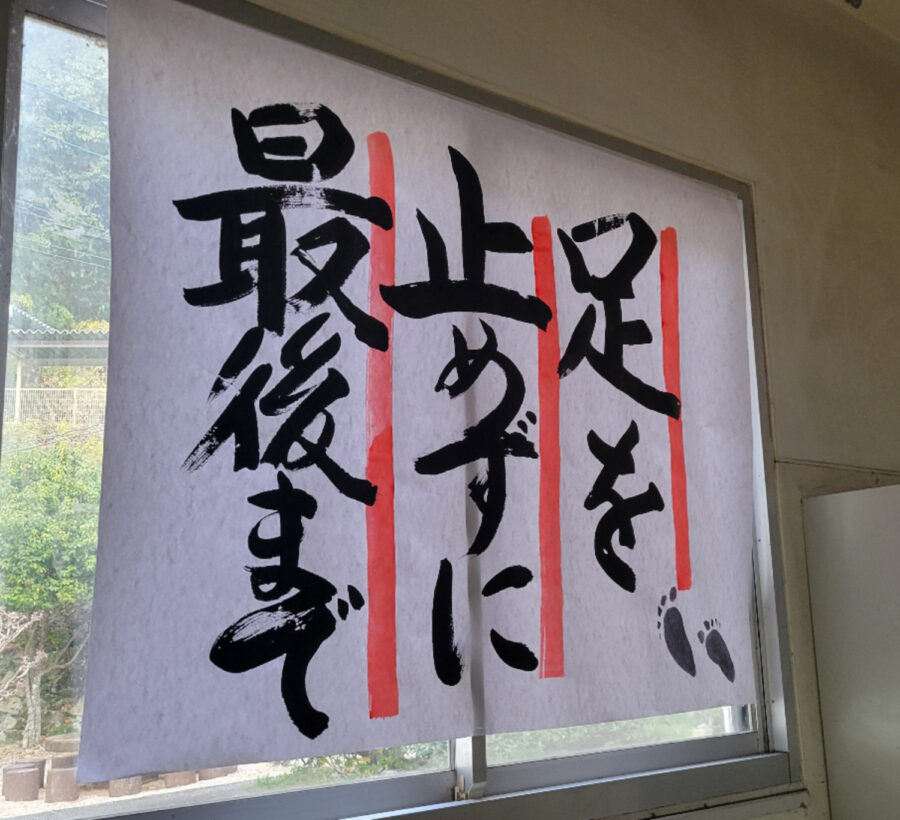 足を
止めずに
最後まで